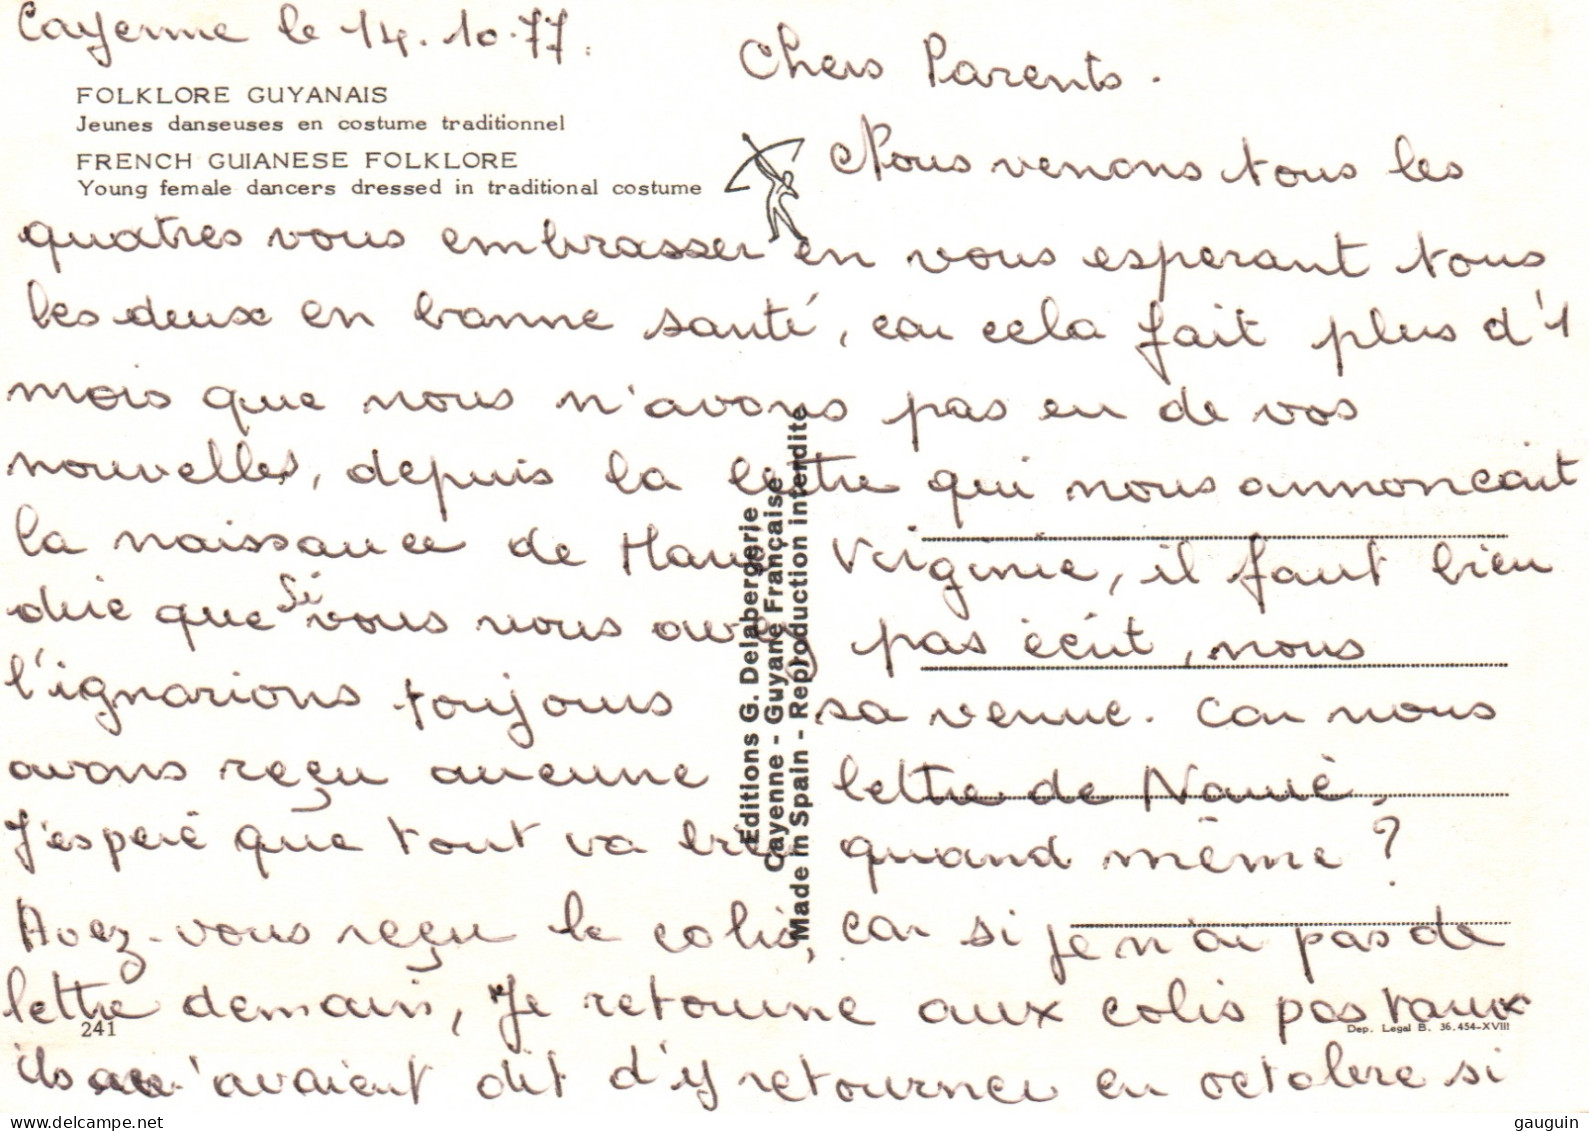 Cayenne le 14.10.77.
Chers Parents.
FOLKLORE GUYANAIS
Jeunes danseuses en costume traditionnel
FRENCH GUIANESE FOLKLORE
Young female dancers dressed in traditional costume
Nous venons tous les
quatres vous embrasser en vous esperant tous
les deux en bonne santé, car cela fait plus d'1
mois que nous n'avons pas eu de vos
nouvelles, depuis la lettre qui nous annoncait
la naissance de Virginie, il faut bien
dire que si vous nous avez pas écrit, nous
l'ignorions toujours sa venue. Car nous
avons reçu aucune lettre de
J'espère que tout va bien quand même ?
Avez-vous reçu le colis, car si je n'ai pas de
lettre demain, Je retourne aux colis postaux
ils m'avaient dit d'y retourner en octobre si
Editions G. Delabergerie
Cayenne - Guyane Française
Made in Spain - Reproduction interdite
241
Dep. Legal B. 36.454-XVIII
gauguin
www.delcampe.net